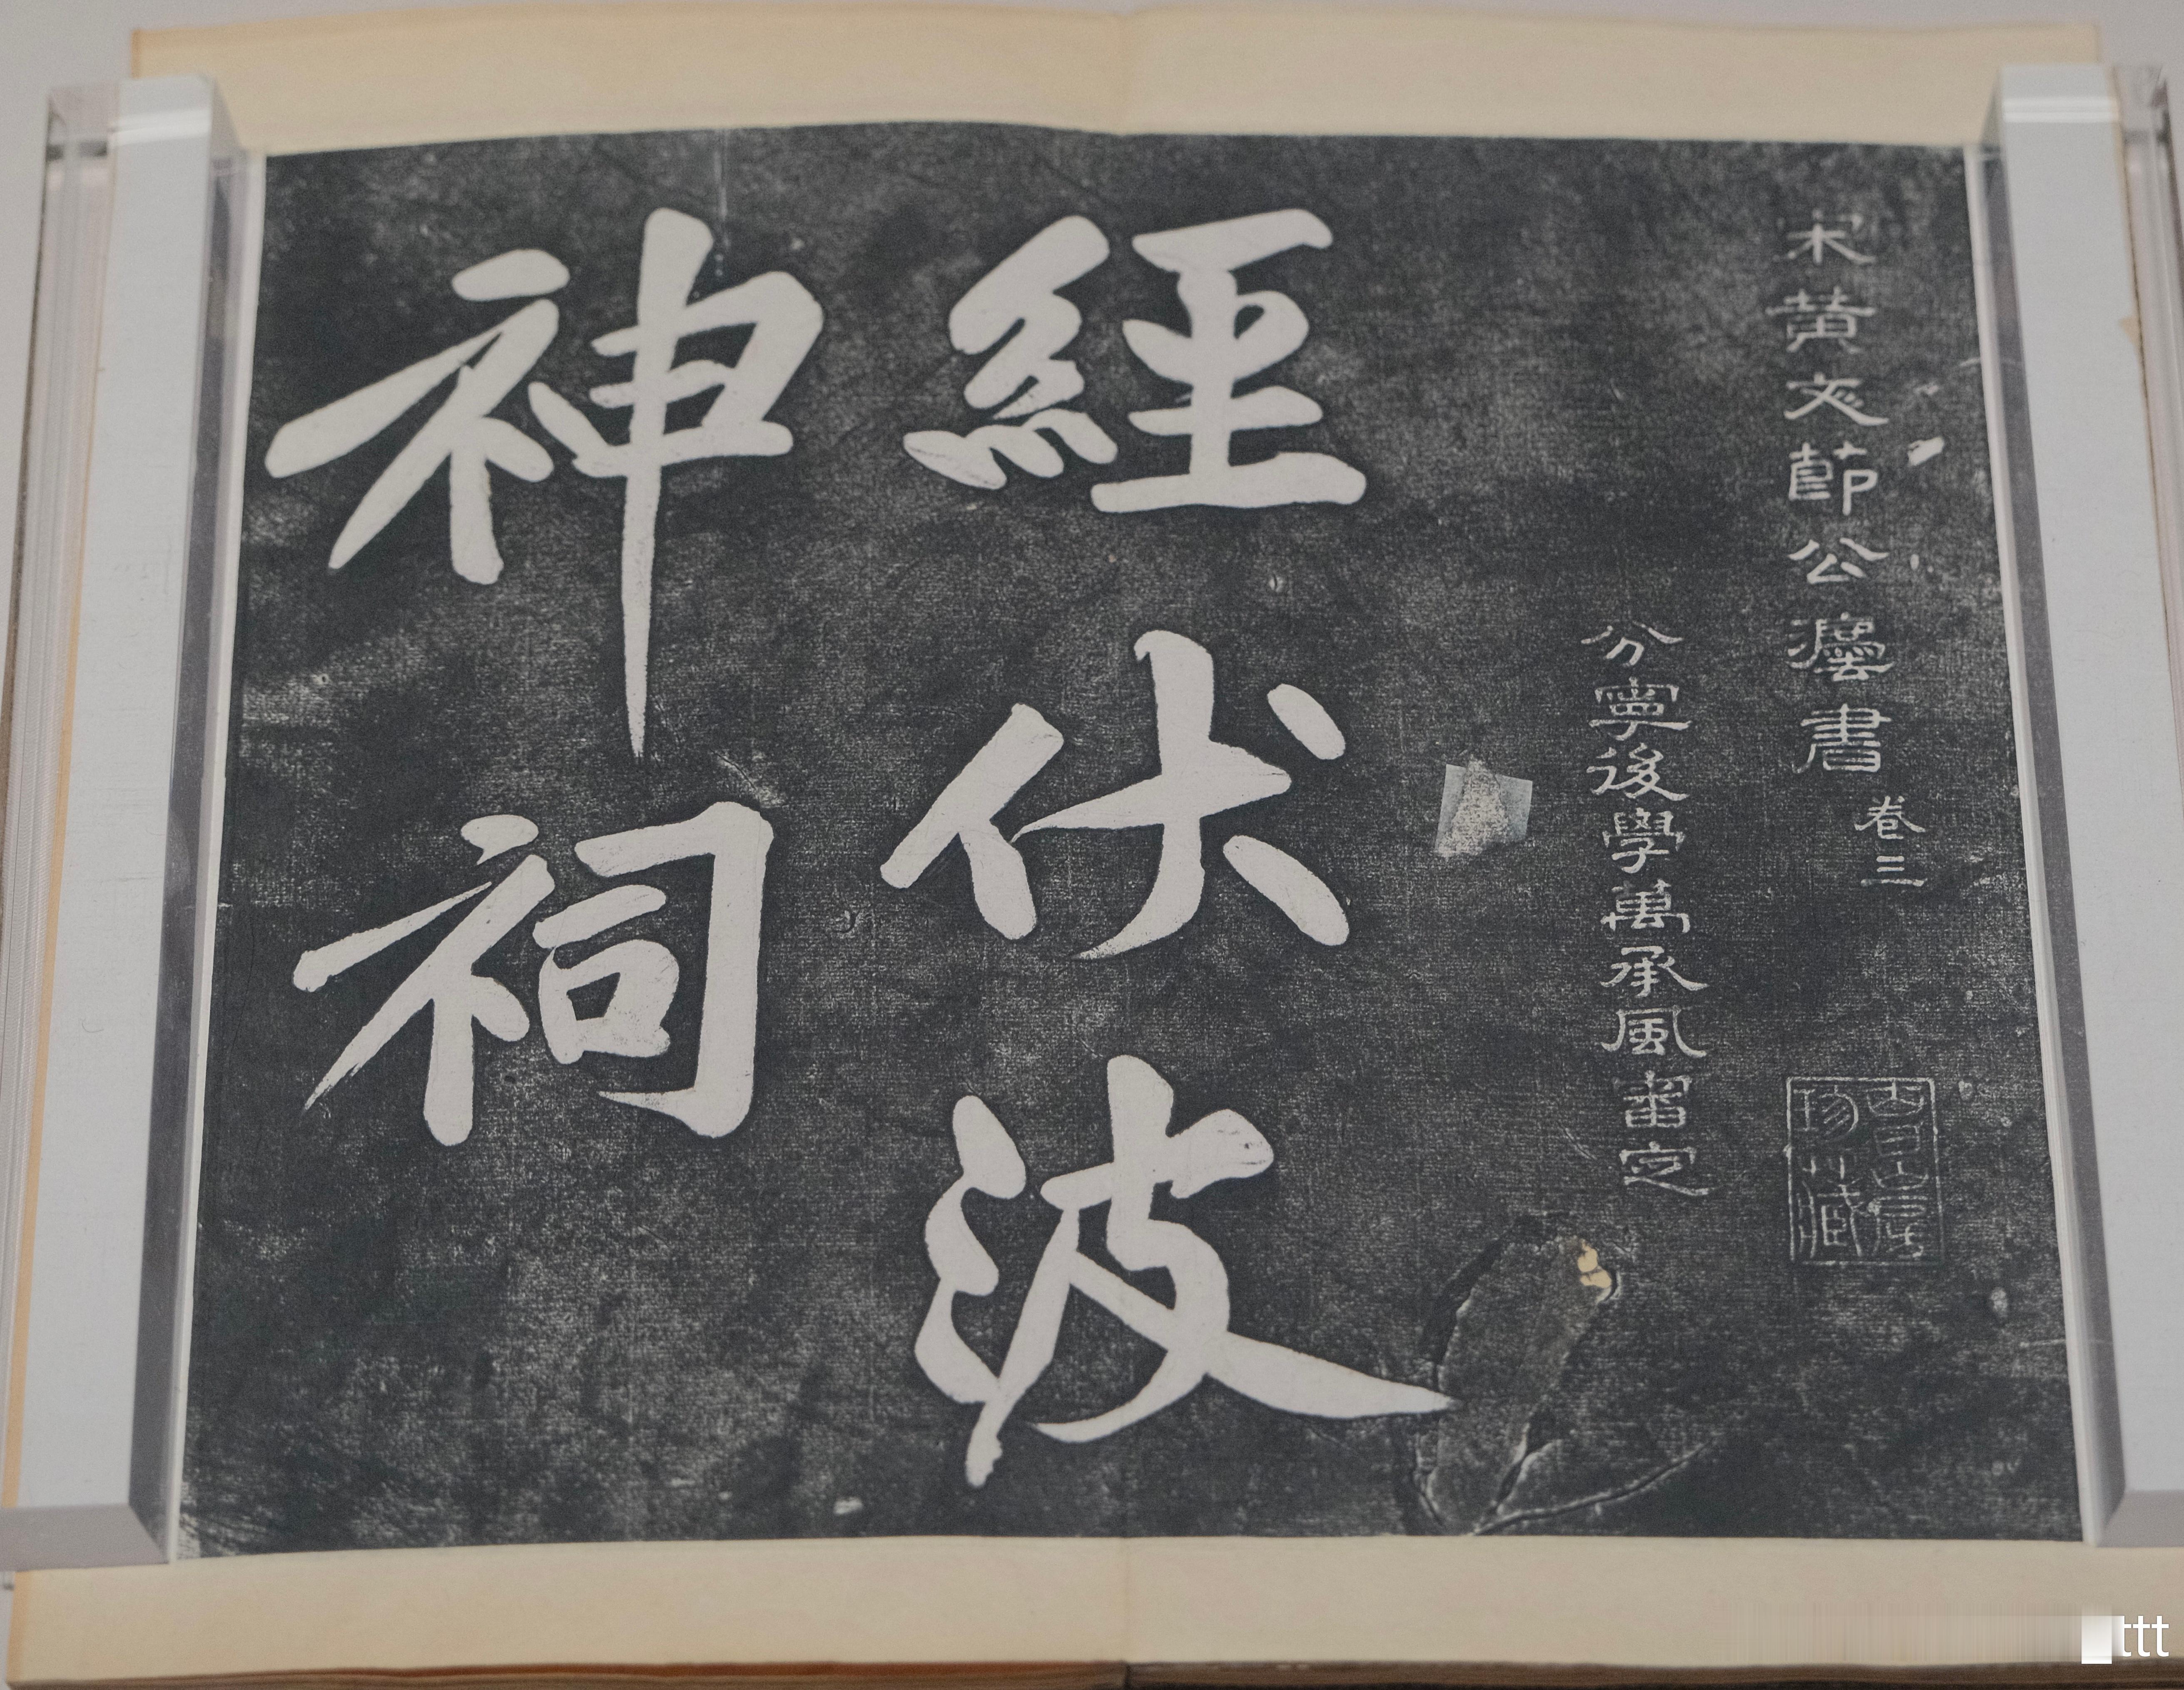 宋黄文節公灋書 卷三
分寧後學萬承風審定
經伏波
神祠
山房
珍藏
ttt